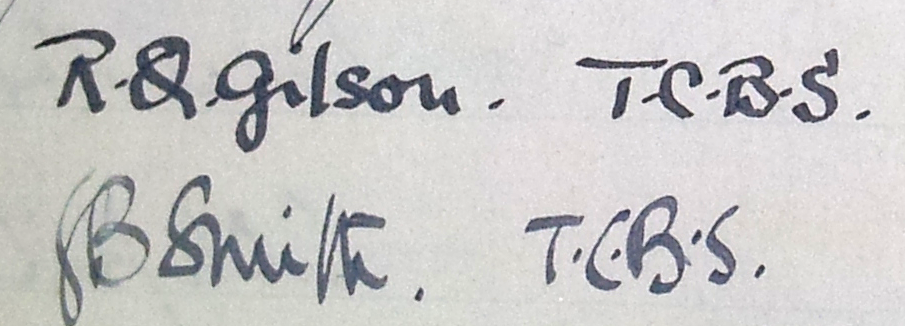 R.Q.Gilson. T.C.B.S.
GB Smith. T.C.B.S.